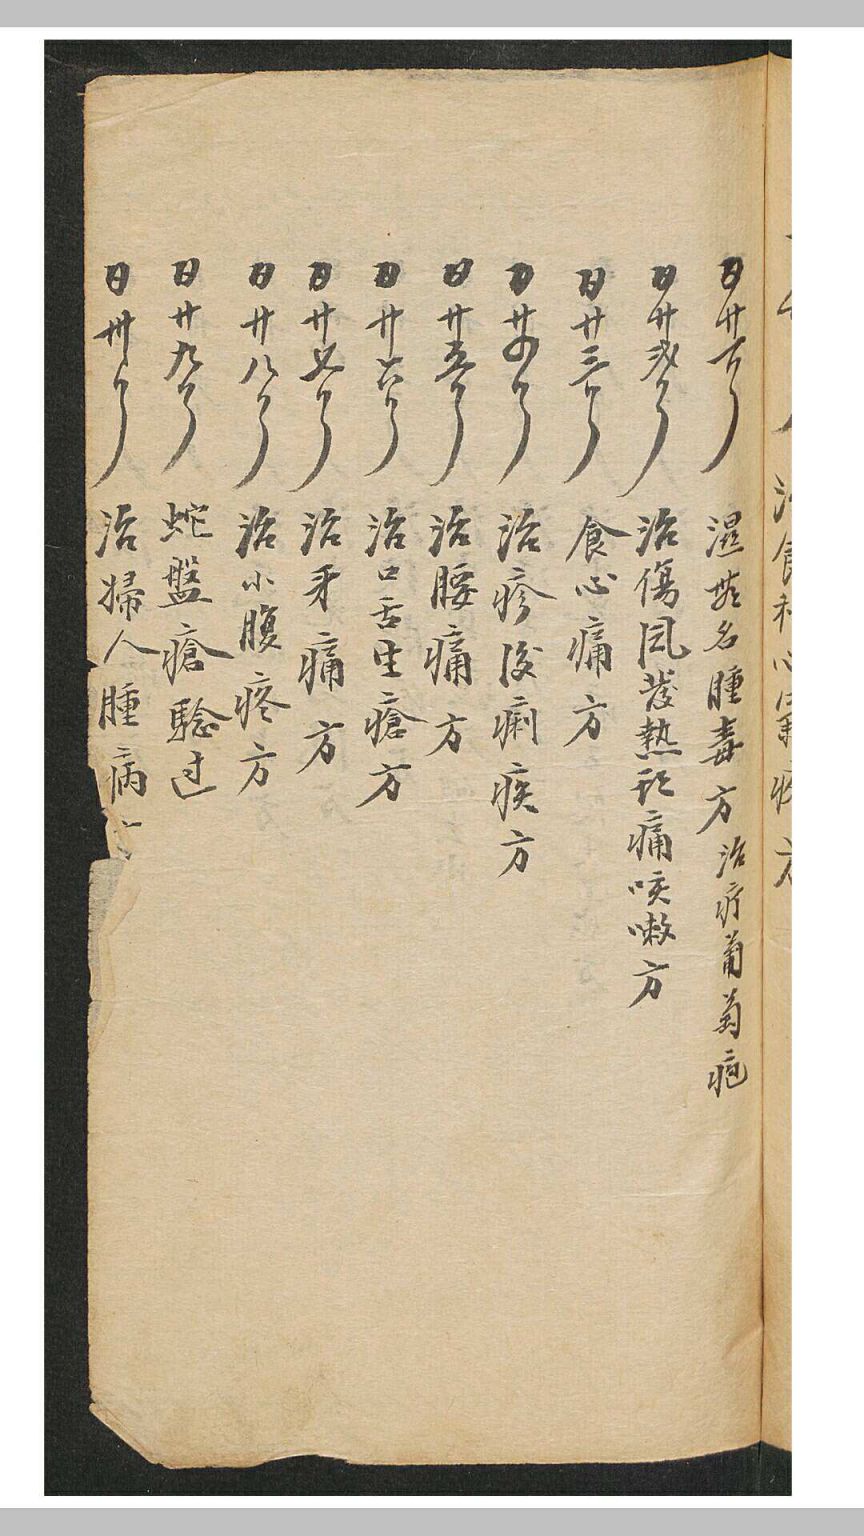 治食積心氣疼方
日廿一 濕無名腫毒方 治疔葡萄疱
日廿弍 治傷風發熱頭痛咳嗽方
日廿三 食心痛方
日廿四 治疹後痢疾方
日廿五 治腰痛方
日廿六 治口舌生瘡方
日廿七 治牙痛方
日廿八 治小腹疼方
日廿九 蛇盤瘡騐过
日卅 治婦人腫病